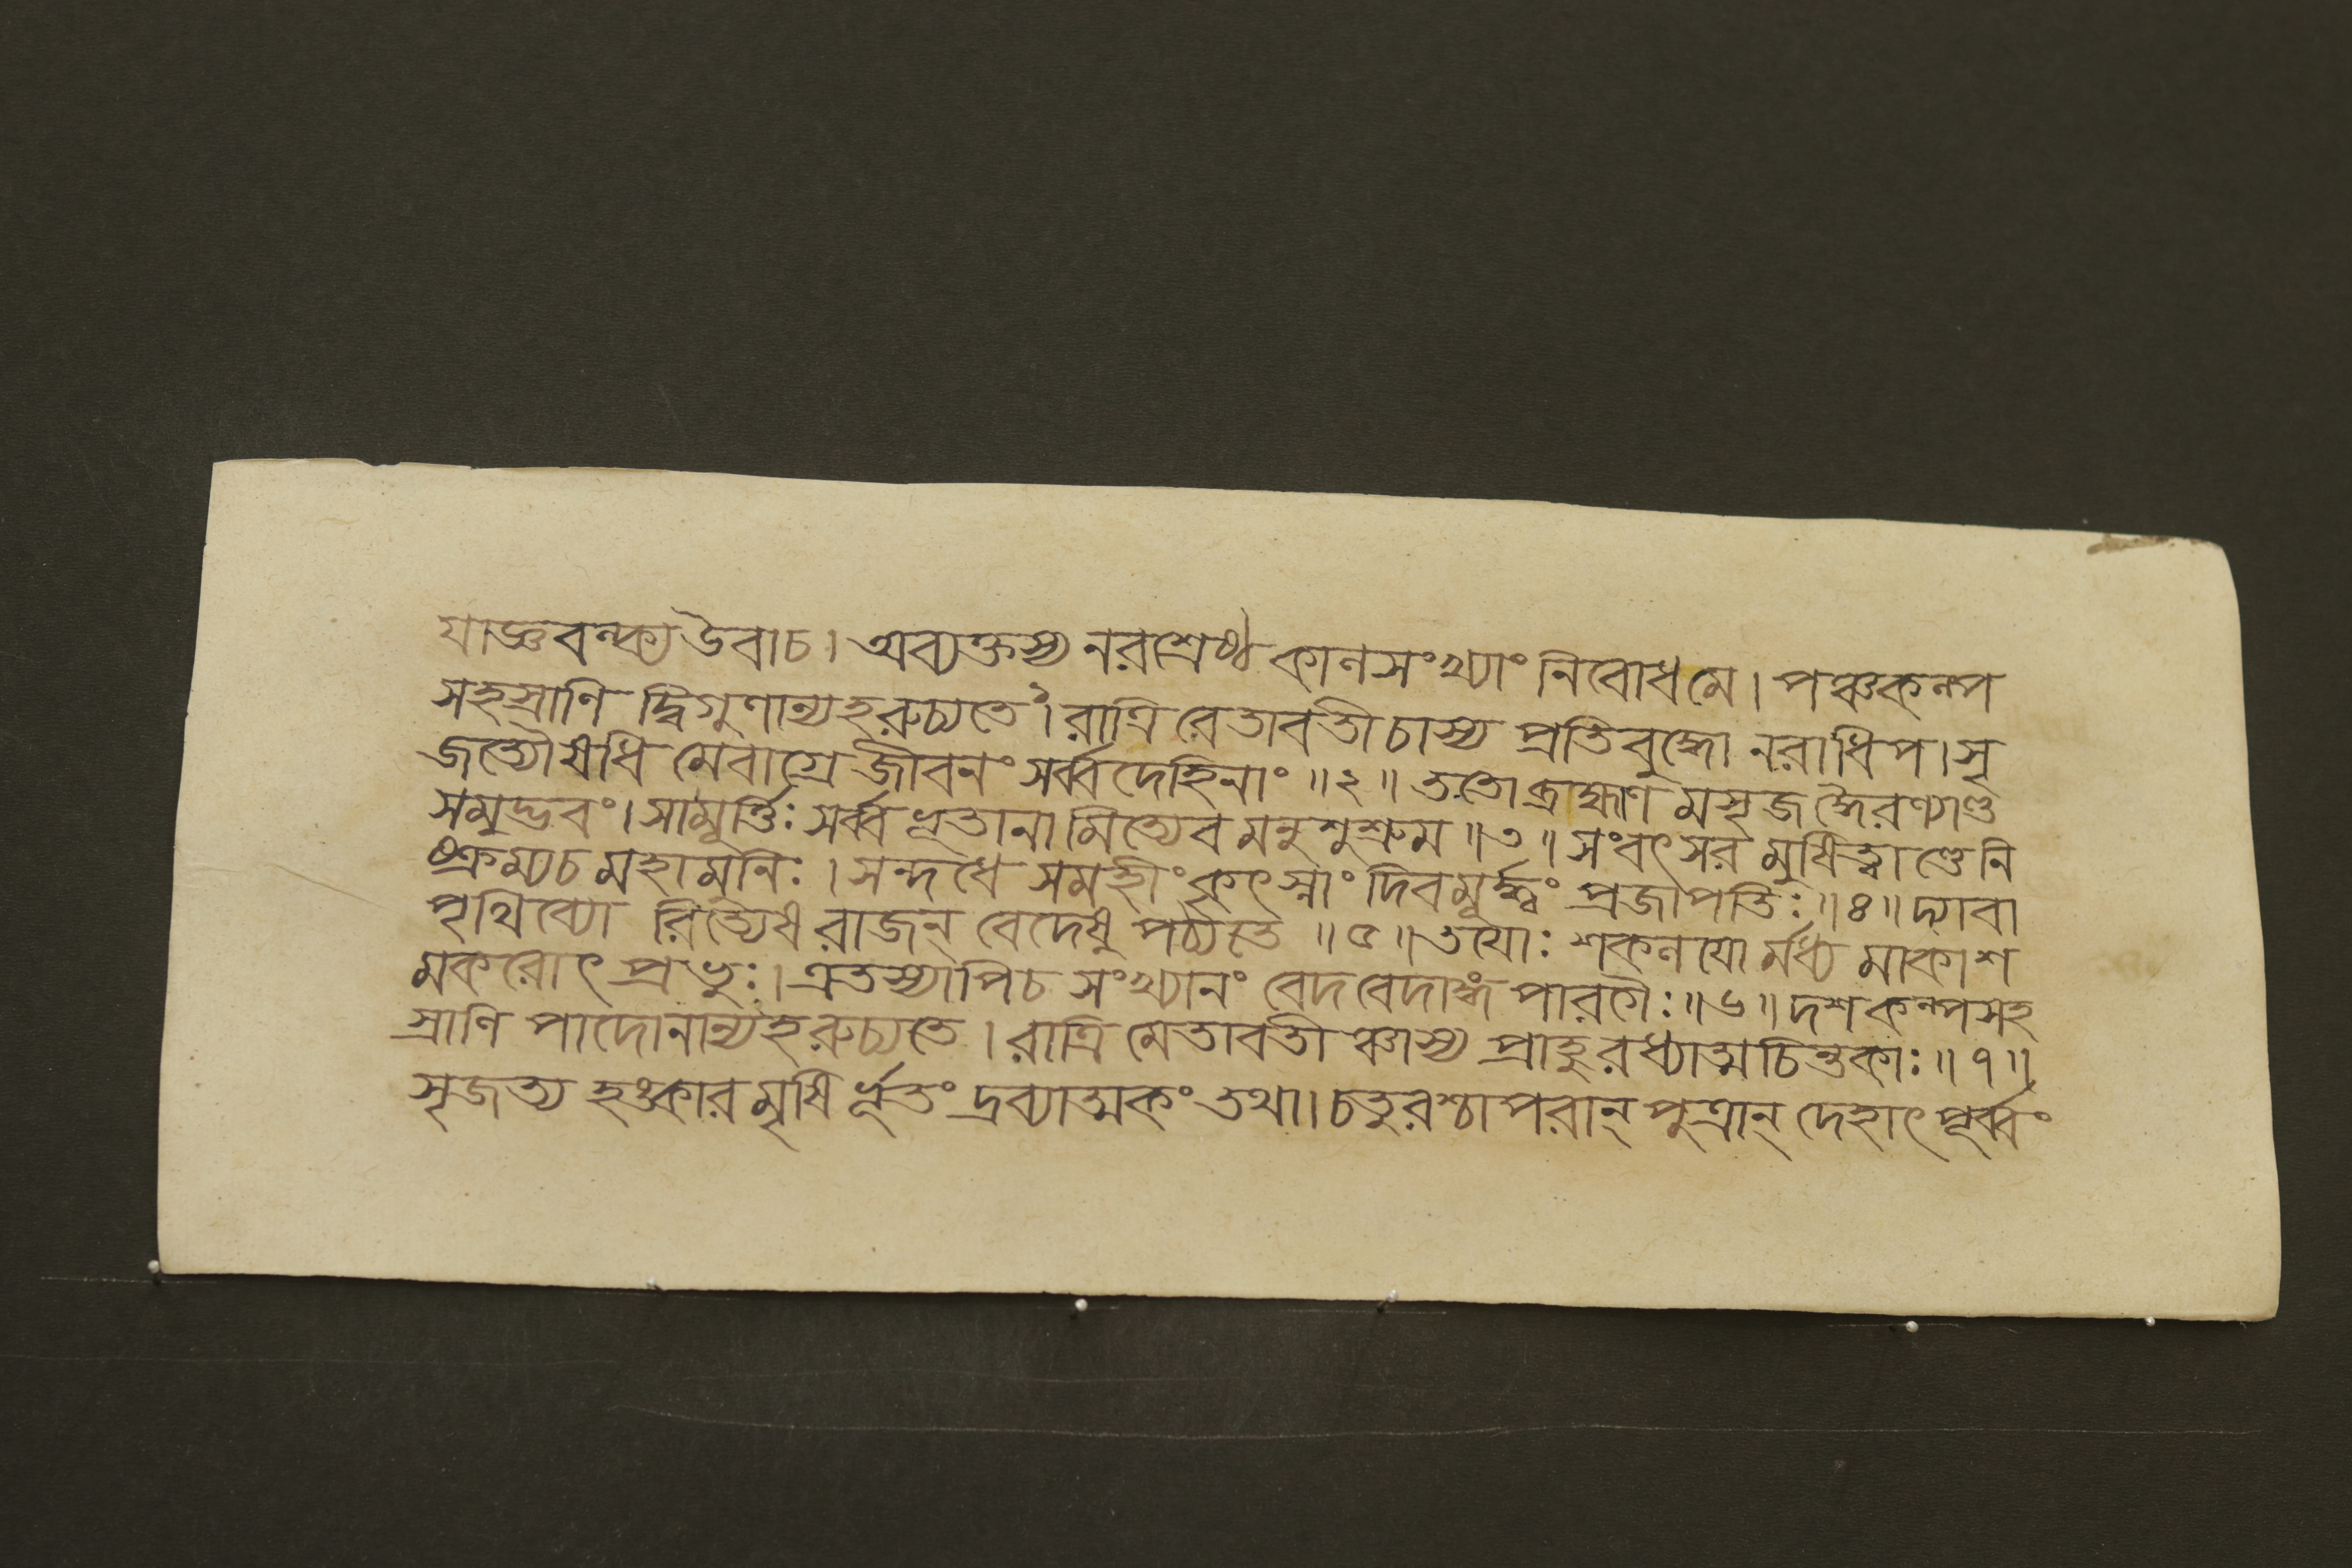 যাজ্ঞবল্ক্য উবাচ। অব্যক্তস্য নরশ্রেষ্ঠ কালসংখ্যাং নিবোধমে। পঞ্চকল্প
সহস্রাণি দ্বিগুণান্যহরুচ্যতে১। রাত্রি রেতাবতী চাস্য প্রতিবুদ্ধো নরাধিপ। সৃ
জত্যৌষধি মেবাগ্রে জীবনং সর্ব্বদেহিনাং ॥২॥ ততো ব্রাহ্মাণ মসৃজ দ্ধৈরণ্যাণ্ড
সমুদ্ভবং। সামূর্ত্তিঃ সর্ব্বভূতানা মিত্যেব মনুশুশ্রুম ॥৩॥ সংবৎসর মুষিত্বাণ্ডে নি
ষ্ক্রম্যচ মহামুনিঃ। সন্দধে সমহীং কৃৎস্নাং দিবমূর্দ্ধ্বং প্রজাপতিঃ ॥৪॥ দ্যাবা
পৃথিব্যো রিত্যেষ রাজন্ বেদেষু পঠ্যতে ॥৫॥ তযোঃ শকলযো র্মধ্য মাকাশ
মকরোৎ প্রভুঃ। এতস্যাপিচ সংখ্যানং বেদবেদাঙ্গ পারগৈঃ ॥৬॥ দশকল্পসহ
স্রাণি পাদোনান্যহরুচ্যতে। রাত্রি মেতাবতী ঞ্চাস্য প্রাহুরধ্যাত্মচিন্তকাঃ ॥৭॥
সৃজত্য হঙ্কার মৃষি র্ভূতং দ্রব্যাত্মকং তথা। চতুরশ্চাপরান্ পুত্রান্ দেহাৎ পূর্ব্বং